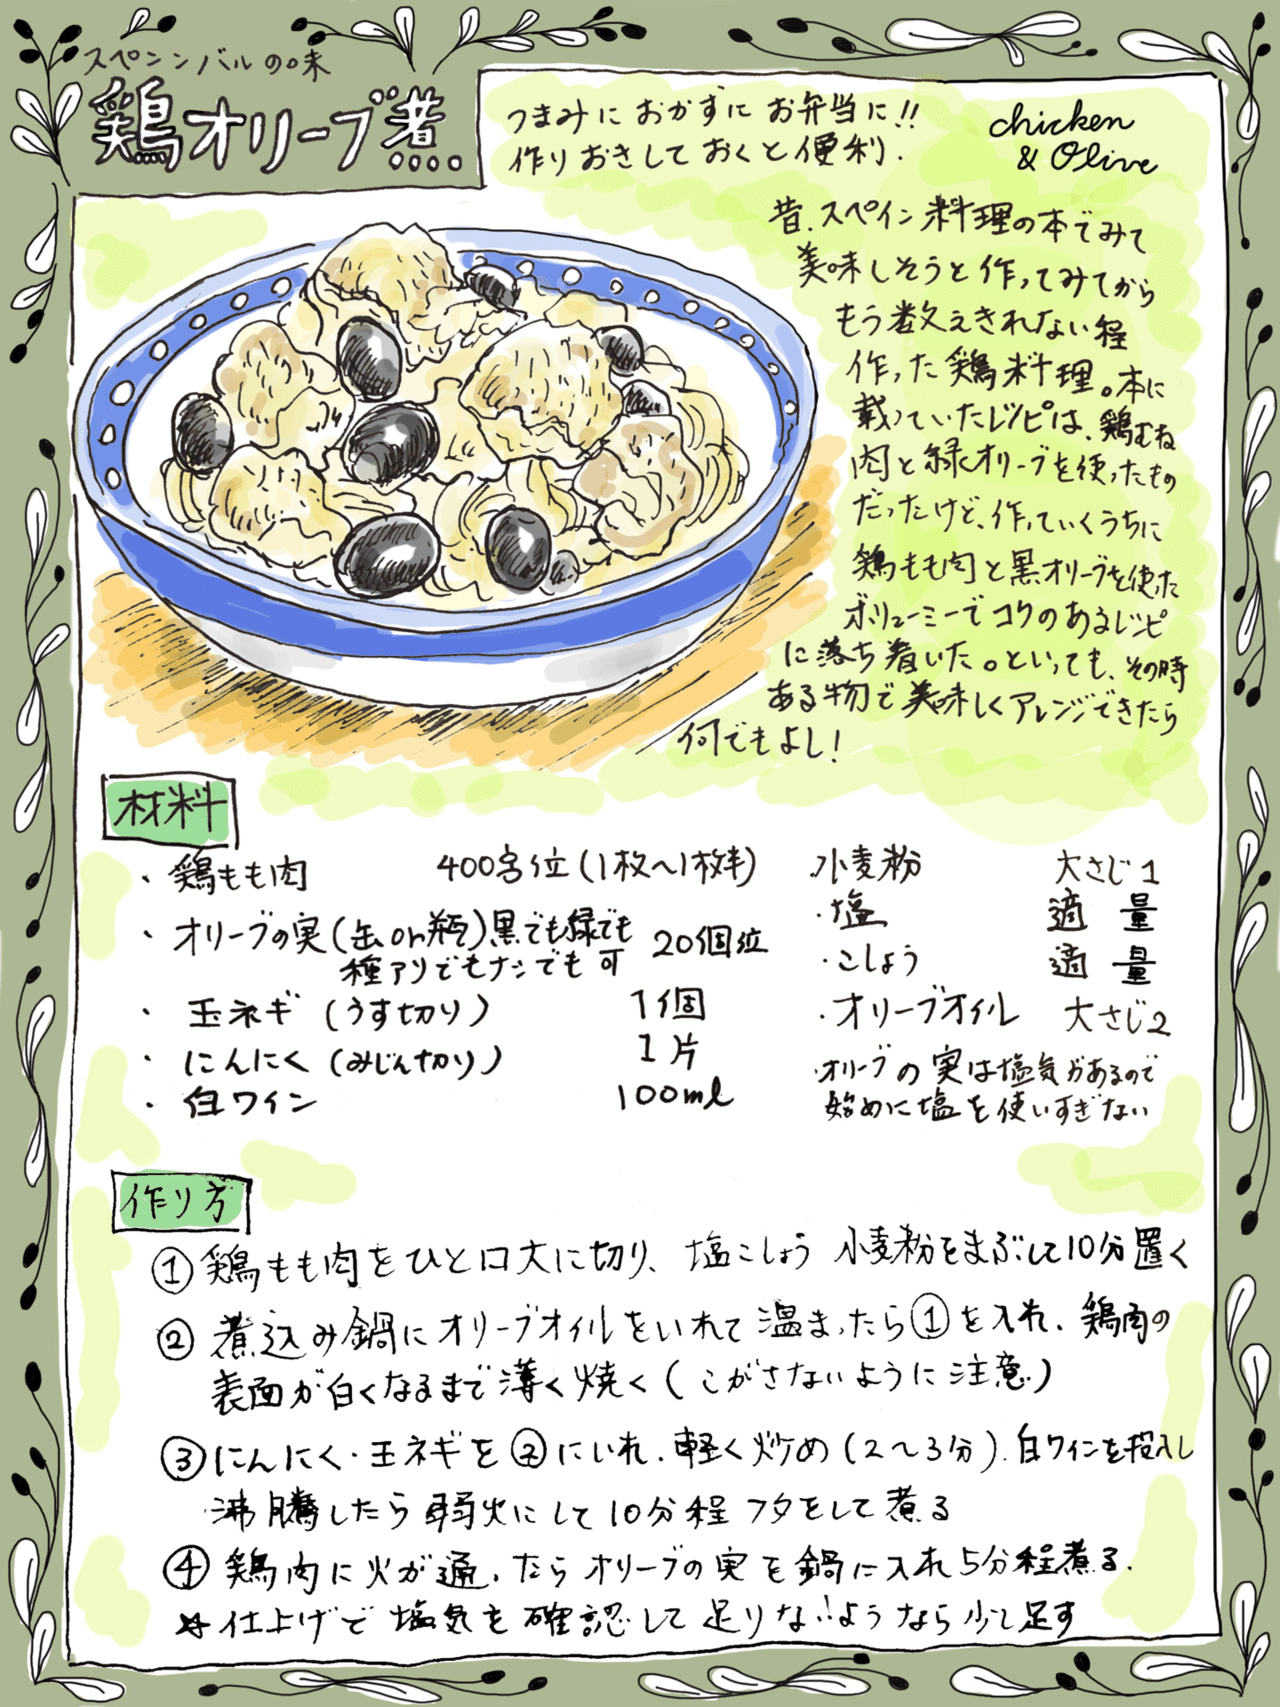 スペンンバルの味
鶏オリーブ煮.
つまみに おかずに お弁当に!!
作りおきしておくと便利.
chicken
& Olive
昔、スペイン料理の本でみて
美味しそうと作ってみてから
もう数えきれない程
作った鶏料理。本に
載っていたレシピは、鶏むね
肉と緑オリーブを使ったもの
だったけど、作っていくうちに
鶏もも肉と黒オリーブを使った
ボリューミーでコクのあるレシピ
に落ち着いた。といっても、その時
ある物で美味しくアレンジできたら
何でもよし!
材料
・鶏もも肉 400g位(1枚〜1枚半)
・オリーブの実(缶or瓶)黒でも緑でも 20個位
種アリでもナシでも可
・玉ネギ(うす切り) 1個
・にんにく(みじん切り) 1片
・白ワイン 100ml
・小麦粉 大さじ1
・塩 適量
・こしょう 適量
・オリーブオイル 大さじ2
・オリーブの実は塩気があるので
始めに塩を使いすぎない
作り方
①鶏もも肉をひと口大に切り、塩こしょう 小麦粉をまぶして10分置く
②煮込み鍋にオリーブオイルをいれて温まったら①を入れ、鶏肉の
表面が白くなるまで薄く焼く(こがさないように注意)
③にんにく・玉ネギを②にいれ、軽く炒め(2〜3分)、白ワインを投入し
沸騰したら弱火にして10分程フタをして煮る
④鶏肉に火が通ったらオリーブの実を鍋に入れ5分程煮る.
☆仕上げで塩気を確認して足りないようなら少し足す